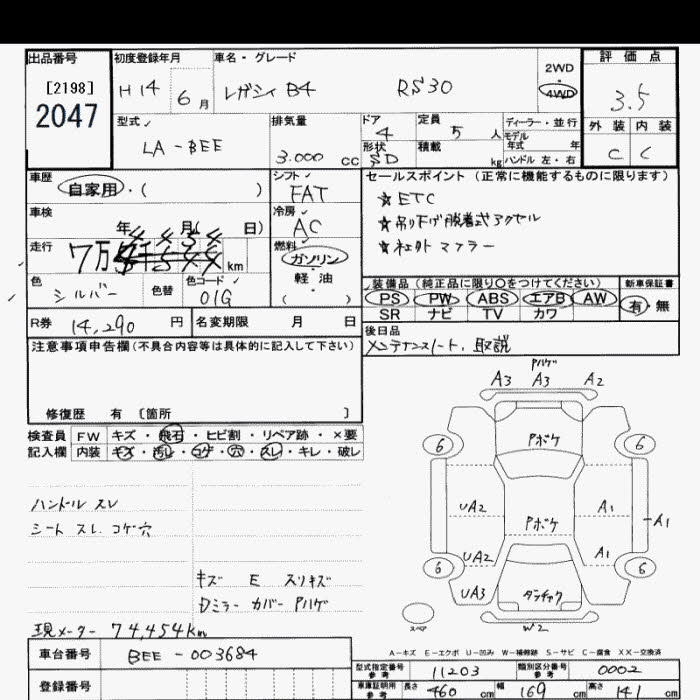 出品番号 初度登録年月 車名・グレード 2WD 評価点
[2198] H14 6月 レガシィ B4 RS30 4WD 3.5
2047 型式 排気量 ドア 定員 ディーラー・並行 外装 内装
LA-BEE 3.000 cc 4 5人 モデル年式 年 C C
形状 積載 kg ハンドル 左・右
SD
車歴 シフト セールスポイント (正常に機能するものに限ります)
自家用・( ) FAT ☆ETC
車検 冷房 ☆吊り下げ脱着式アクセル
年 月( 日) AC ☆社外マフラー
走行 燃料
7万 km ガソリン・軽油 ( )
色 色替 色コード 装備品 (純正品に限り○をつけてください) 新車保証書
シルバー 01G PS PW ABS エアB AW 有・無
SR ナビ TV カワ
R券 14,290円 名変期限 月 日 後日品
メンテナンスノート、取説
注意事項申告欄(不具合内容等は具体的に記入して下さい)
修復歴 有 〔箇所 〕
検査員 FW キズ・飛石・ヒビ割・リペア跡・×要
記入欄 内装 キズ・汚レ・コゲ・穴・スレ・キレ・破レ
ハンドル スレ
シート スレ コゲ穴
キズ E スリキズ
Dミラー カバー Pハゲ
現メーター 74,454km
Pハゲ
A3 A3 A2
Pボケ
6 6
UA2 A1
Pボケ A1
UA2 A1
6 6
UA3 タテチャク
スペア W2
A-キズ E-エクボ U-凹み W-補修跡 S-サビ C-腐食 XX-交換済
車台番号 BEE-003684
型式指定番号 参考 11203 類別区分番号 参考 0002
登録番号 車庫証明用 参考 長さ 460 cm 幅 169 cm 高さ 141 cm